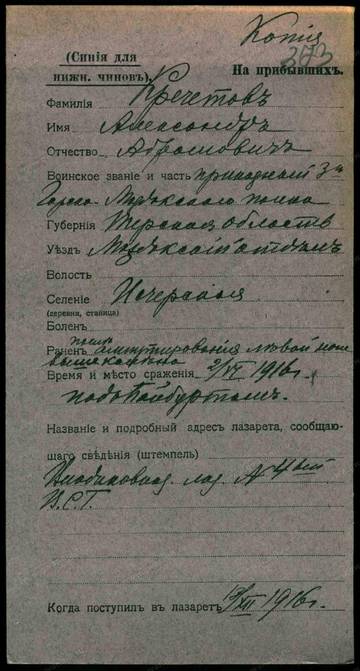 Копія
373
(Синія для
нижн. чиновъ).
На прибывшихъ.
Фамилія Кречетовъ
Имя Александръ
Отчество Абрамовичъ
Воинское званіе и часть приказный 3й
Горско-Моздокского полка
Губернія Терская область
Уѣздъ Моздокскій отдѣлъ
Волость
Селеніе Ищерская
(деревня, станица)
Боленъ
Раненъ послѣ ампутированія лѣвой ноги
выше колѣна
Время и мѣсто сраженія 2/VI 1916 г.
подъ Байбуртомъ.
Названіе и подробный адресъ лазарета, сообщаю-
щаго свѣдѣнія (штемпель)
лаз. № 4ый
В.С.Г.
Когда поступилъ въ лазаретъ /XII 1916 г.